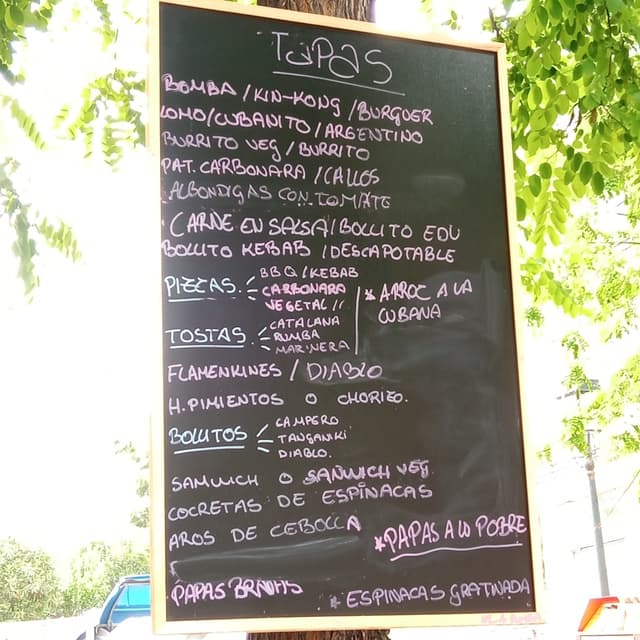 TAPAS
BOMBA / KIN-KONG / BURGUER
LOMO / CUBANITO / ARGENTINO
BURRITO VEG / BURRITO
PAT. CARBONARA / CALLOS
ALBONDIGAS CON TOMATE
CARNE EN SALSA / BOLLITO EDU
BOLLITO KEBAB / DESCAPOTABLE
PIZZAS. BBQ / KEBAB
CARBONARA
VEGETAL //
* ARROZ A LA
CUBANA
TOSTAS. CATALANA
RUMBA
MARINERA
FLAMENKINES / DIABLO
H. PIMIENTOS O CHORIZO.
BOLLITOS CAMPERO
TANGANIKI
DIABLO.
SAMWICH O SANWICH VEG.
COCRETAS DE ESPINACAS
AROS DE CEBOLLA
* PAPAS A LO POBRE
PAPAS BRAVAS
* ESPINACAS GRATINADA